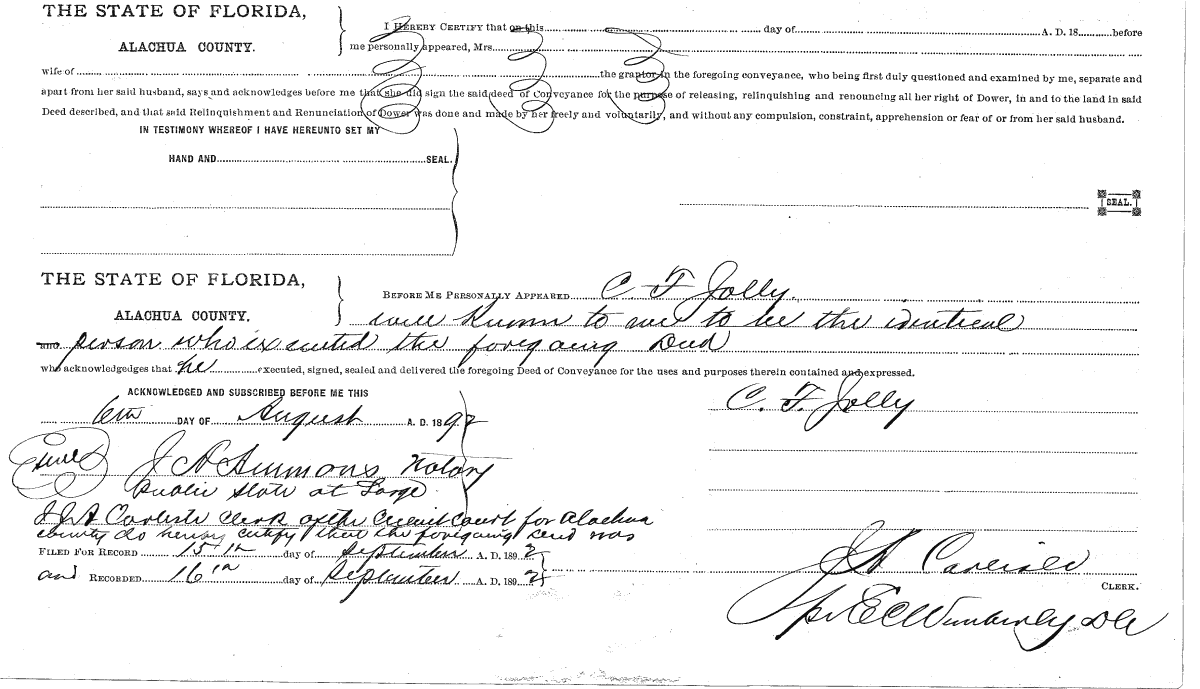 THE STATE OF FLORIDA,
ALACHUA COUNTY.
I HEREBY CERTIFY that on this day of A. D. 18 before
me personally appeared, Mrs.
wife of the grantor in the foregoing conveyance, who being first duly questioned and examined by me, separate and
apart from her said husband, says and acknowledges before me that she did sign the said deed of Conveyance for the purpose of releasing, relinquishing and renouncing all her right of Dower, in and to the land in said
Deed described, and that said Relinquishment and Renunciation of Dower was done and made by her freely and voluntarily, and without any compulsion, constraint, apprehension or fear of or from her said husband.
IN TESTIMONY WHEREOF I HAVE HEREUNTO SET MY
HAND AND SEAL.
SEAL.
THE STATE OF FLORIDA,
ALACHUA COUNTY.
BEFORE ME PERSONALLY APPEARED C. F. Jolly.
well known to me to be the identical
and person who executed the foregoing Deed
who acknowledgedges that he executed, signed, sealed and delivered the foregoing Deed of Conveyance for the uses and purposes therein contained and expressed.
ACKNOWLEDGED AND SUBSCRIBED BEFORE ME THIS
6th DAY OF August A. D. 1892
C. F. Jolly
J A Simmons Notary
Public State at Large
I J A Carlisle Clerk of the Circuit Court for Alachua
county do hereby certify that the foregoing deed was
FILED FOR RECORD 15th day of September A. D. 1892
and RECORDED 16th day of September A. D. 1892
J A Carlisle
CLERK.
per E C Wimberly DC